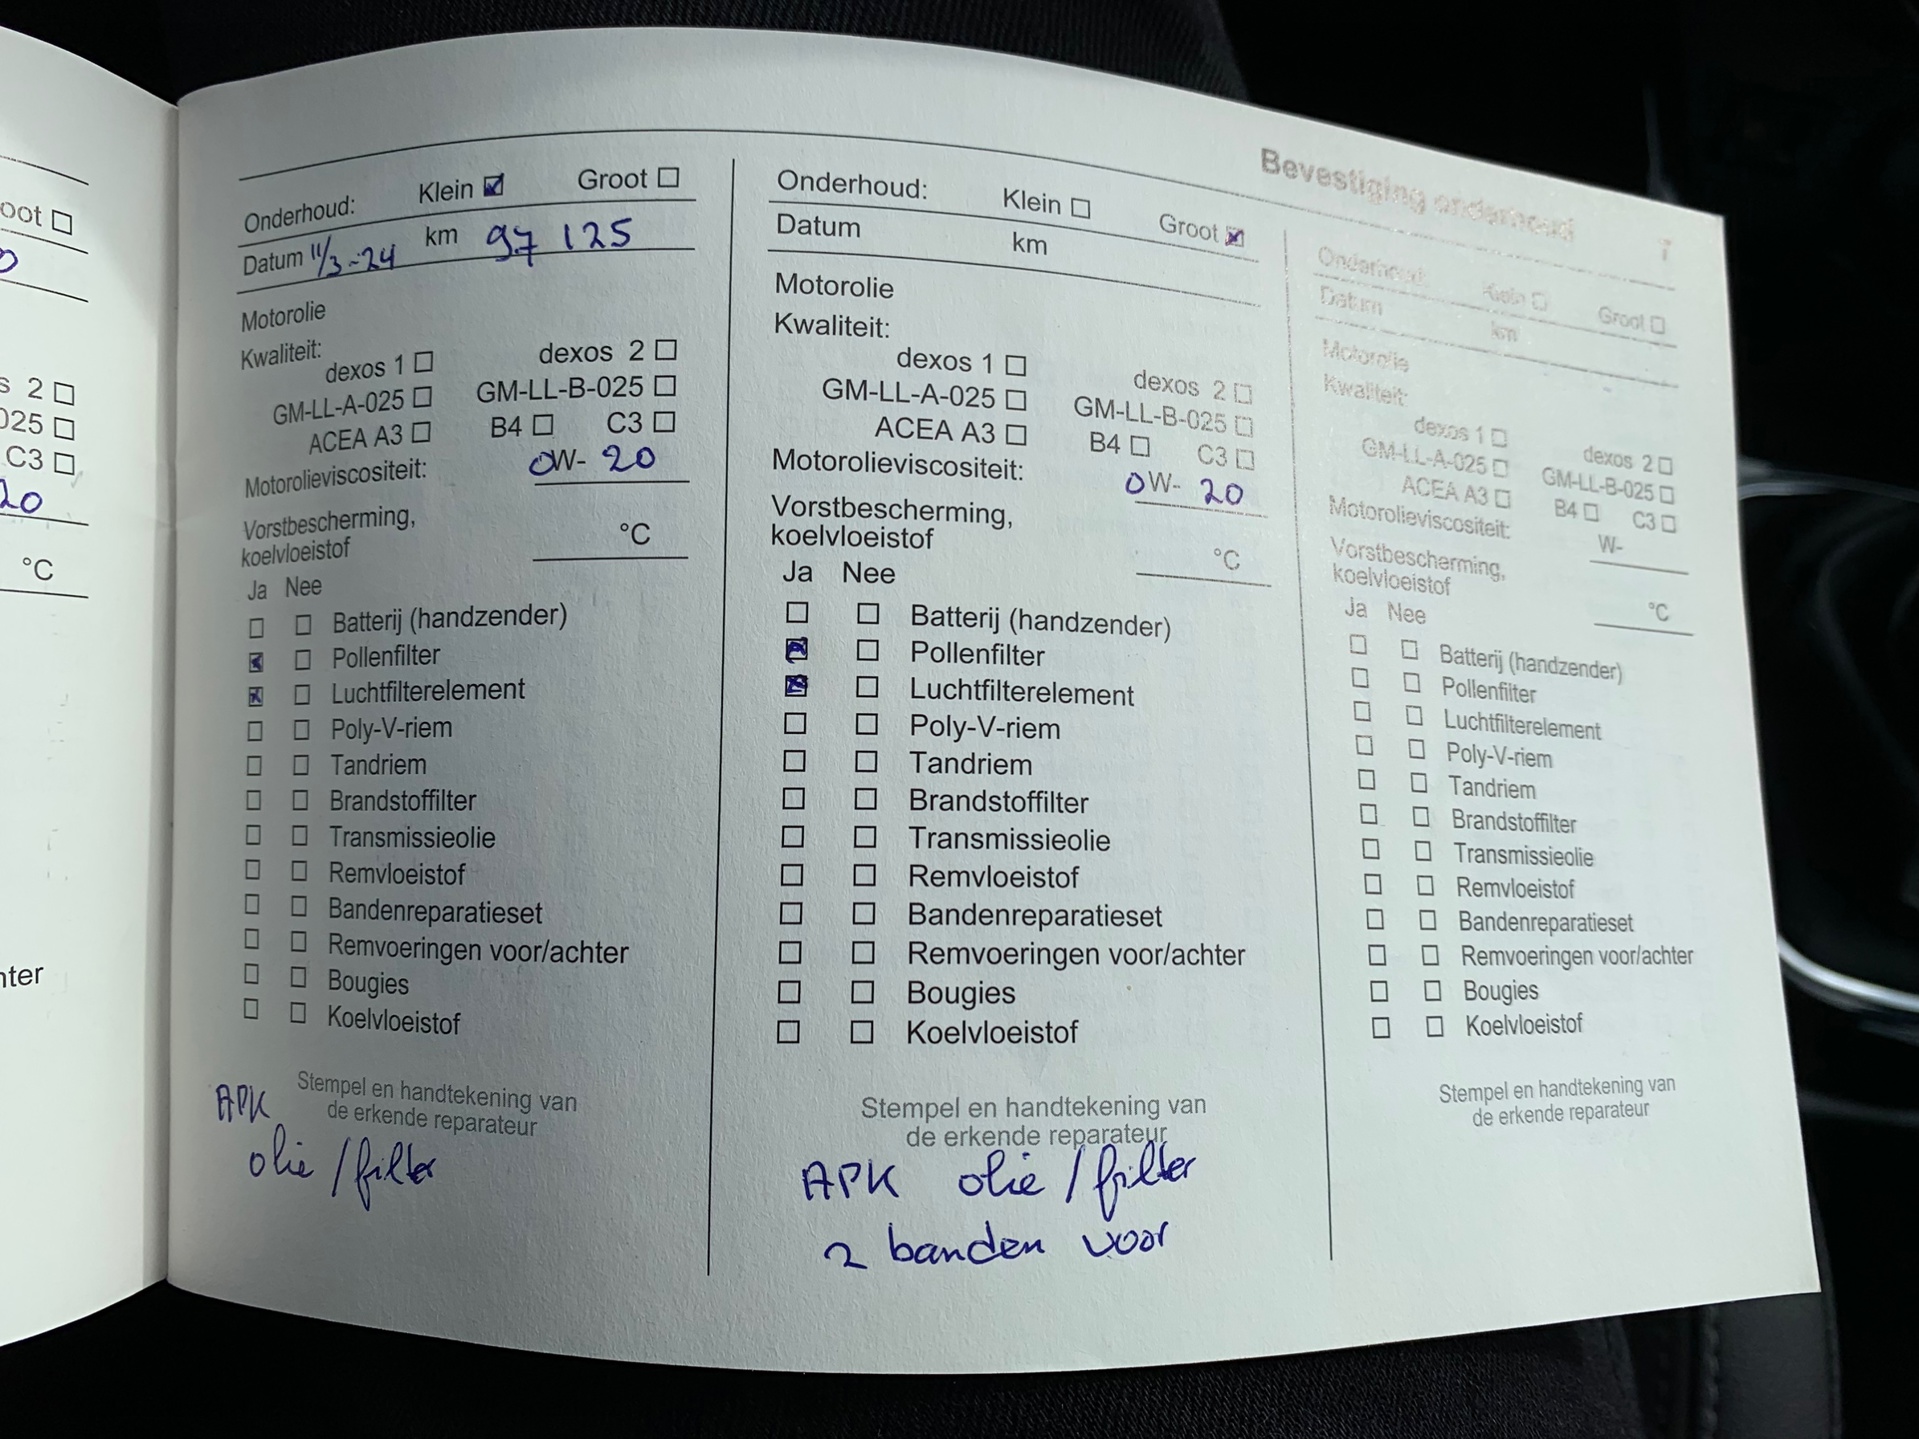 oot ☐
s 2 ☐
025 ☐
C3 ☐
20
°C
hter
Bevestiging onderhoud
7
Onderhoud: Klein ☒ Groot ☐
Datum 11/3-24 km 97 125
Motorolie
Kwaliteit:
dexos 1 ☐ dexos 2 ☐
GM-LL-A-025 ☐ GM-LL-B-025 ☐
ACEA A3 ☐ B4 ☐ C3 ☐
Motorolieviscositeit: 0W- 20
Vorstbescherming,
koelvloeistof °C
Ja Nee
☐ ☐ Batterij (handzender)
☒ ☐ Pollenfilter
☒ ☐ Luchtfilterelement
☐ ☐ Poly-V-riem
☐ ☐ Tandriem
☐ ☐ Brandstoffilter
☐ ☐ Transmissieolie
☐ ☐ Remvloeistof
☐ ☐ Bandenreparatieset
☐ ☐ Remvoeringen voor/achter
☐ ☐ Bougies
☐ ☐ Koelvloeistof
Stempel en handtekening van
de erkende reparateur
APK
olie / filter
Onderhoud: Klein ☐ Groot ☒
Datum km
Motorolie
Kwaliteit:
dexos 1 ☐ dexos 2 ☐
GM-LL-A-025 ☐ GM-LL-B-025 ☐
ACEA A3 ☐ B4 ☐ C3 ☐
Motorolieviscositeit: 0W- 20
Vorstbescherming,
koelvloeistof °C
Ja Nee
☐ ☐ Batterij (handzender)
☒ ☐ Pollenfilter
☒ ☐ Luchtfilterelement
☐ ☐ Poly-V-riem
☐ ☐ Tandriem
☐ ☐ Brandstoffilter
☐ ☐ Transmissieolie
☐ ☐ Remvloeistof
☐ ☐ Bandenreparatieset
☐ ☐ Remvoeringen voor/achter
☐ ☐ Bougies
☐ ☐ Koelvloeistof
Stempel en handtekening van
de erkende reparateur
APK olie / filter
2 banden voor
Onderhoud: Klein ☐ Groot ☐
Datum km
Motorolie
Kwaliteit:
dexos 1 ☐ dexos 2 ☐
GM-LL-A-025 ☐ GM-LL-B-025 ☐
ACEA A3 ☐ B4 ☐ C3 ☐
Motorolieviscositeit: W-
Vorstbescherming,
koelvloeistof °C
Ja Nee
☐ ☐ Batterij (handzender)
☐ ☐ Pollenfilter
☐ ☐ Luchtfilterelement
☐ ☐ Poly-V-riem
☐ ☐ Tandriem
☐ ☐ Brandstoffilter
☐ ☐ Transmissieolie
☐ ☐ Remvloeistof
☐ ☐ Bandenreparatieset
☐ ☐ Remvoeringen voor/achter
☐ ☐ Bougies
☐ ☐ Koelvloeistof
Stempel en handtekening van
de erkende reparateur